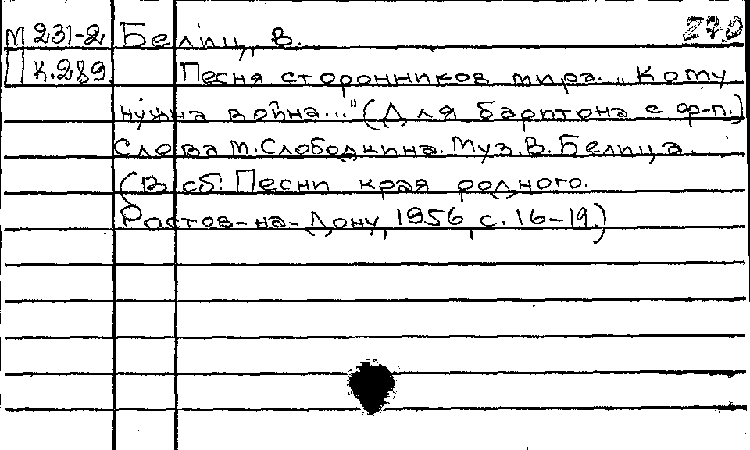 М 231-2 Белиц, В. 270
П к.289 Песня сторонников мира. "Кому
нужна война..." (Для баритона с ф-п.)
Слова М. Слободкина. Муз. В. Белица.
(В сб: Песни края родного.
Ростов-на-Дону, 1956, с. 16-19.)